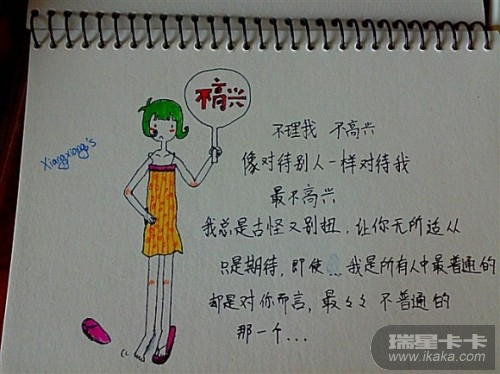 不高兴
Xiangxiang's
不理我 不高兴
像对待别人一样对待我
最不高兴
我总是古怪又别扭，让你无所适从
只是期待，即使 ...我是所有人中最普通的
却是对你而言，最々々 不普通的
那一个...
瑞星卡卡
www.ikaka.com